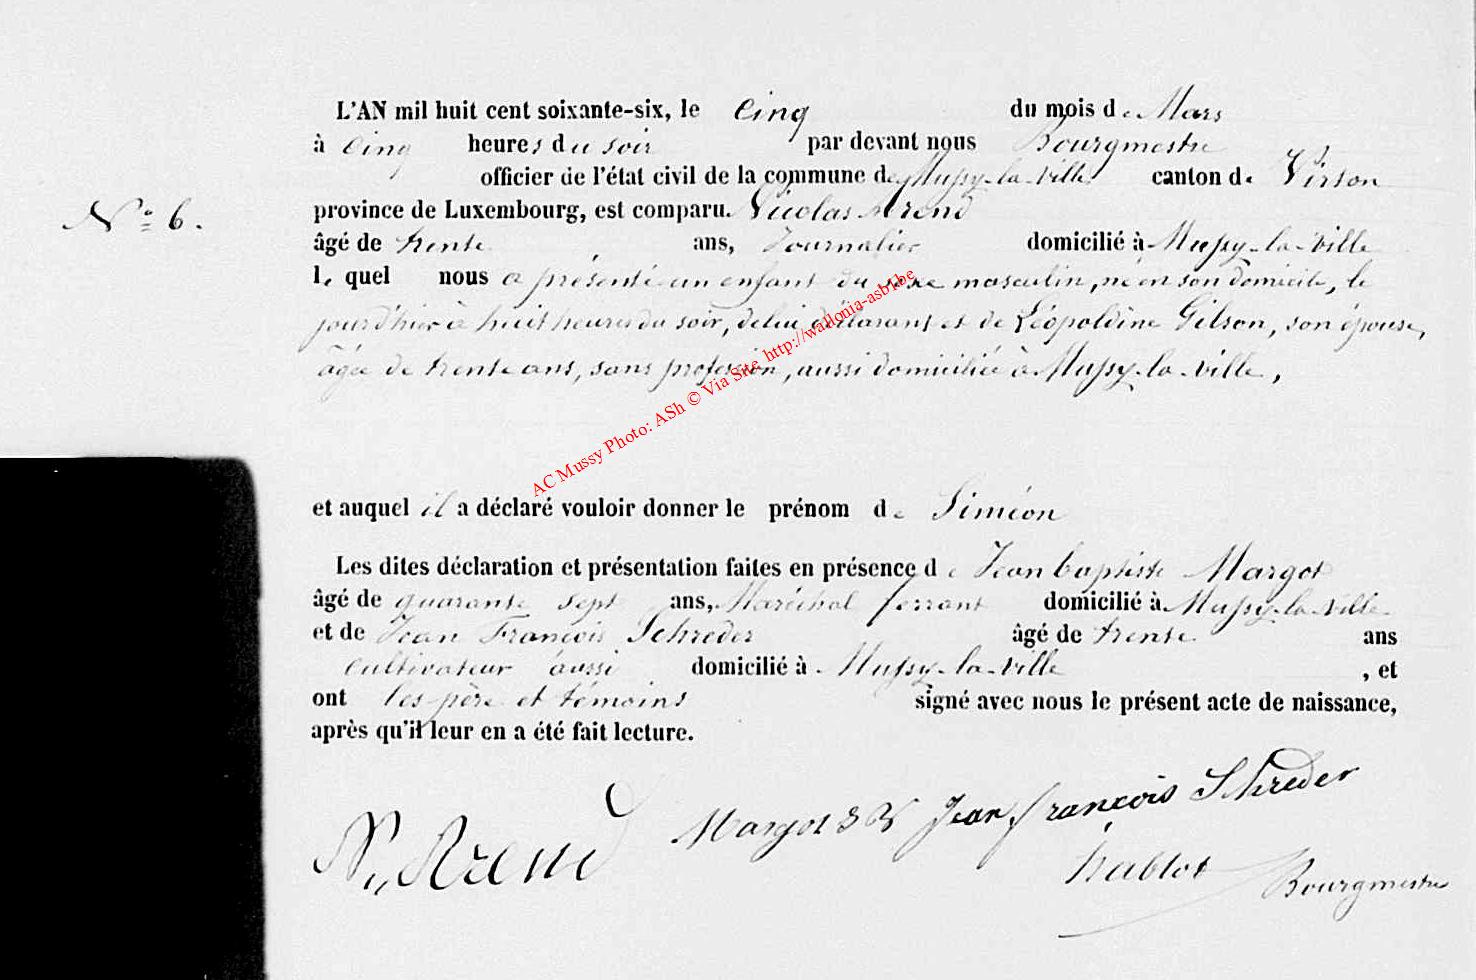 L'AN mil huit cent soixante-six, le Cinq du mois de Mars
à Cinq heures du soir par devant nous Bourgmestre
officier de l'état civil de la commune de Mussy-la-Ville canton de Virton
N° 6.
province de Luxembourg, est comparu Nicolas Arend
âgé de trente ans, Journalier domicilié à Mussy-la-Ville
lequel nous a présenté un enfant du sexe masculin, né en son domicile, le
jour d'hier à huit heures du soir, de lui déclarant et de Léopoldine Gilson, son épouse,
âgée de trente ans, sans profession, aussi domiciliée à Mussy-la-ville,
AC Mussy Photo: ASh © Via Site http://wallonia-asbl.be
et auquel il a déclaré vouloir donner le prénom de Siméon
Les dites déclaration et présentation faites en présence de Jean baptiste Margot
âgé de quarante sept ans, Maréchal ferrant domicilié à Mussy-la-Ville
et de Jean François Schreder âgé de trente ans
cultivateur aussi domicilié à Mussy-la-Ville , et
ont les père et témoins signé avec nous le présent acte de naissance,
après qu'il leur en a été fait lecture.
N. Arend Margot J B Jean françois Schreder
hablot Bourgmestre